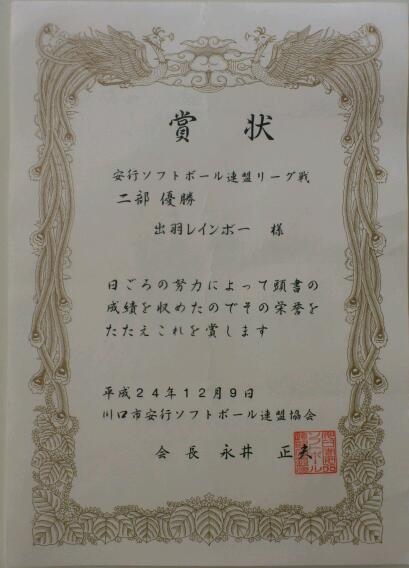 賞状
安行ソフトボール連盟リーグ戦
二部 優勝
出羽レインボー 様
日ごろの努力によって頭書の
成績を収めたのでその栄誉を
たたえこれを賞します
平成24年12月9日
川口市安行ソフトボール連盟協会
会長 永井 正夫